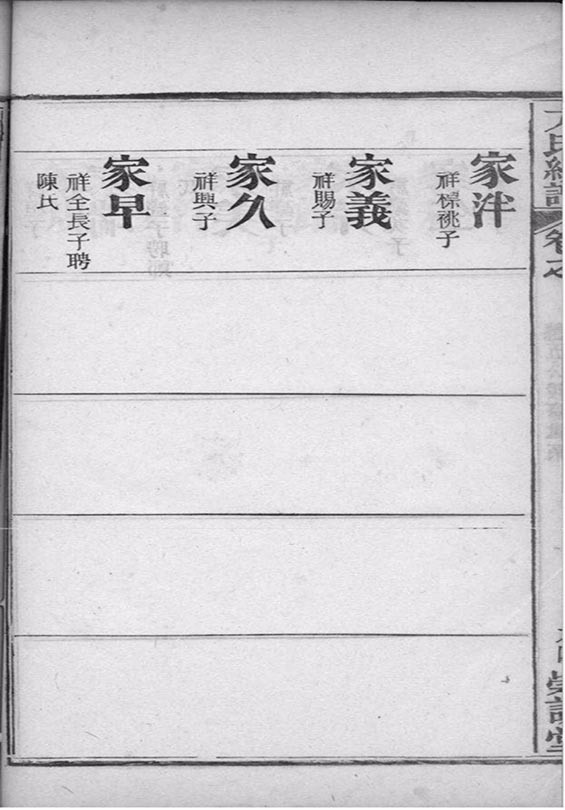 家泮
祥標祧子
家義
祥賜子
家久
祥興子
家早
祥全長子聘
陳氏